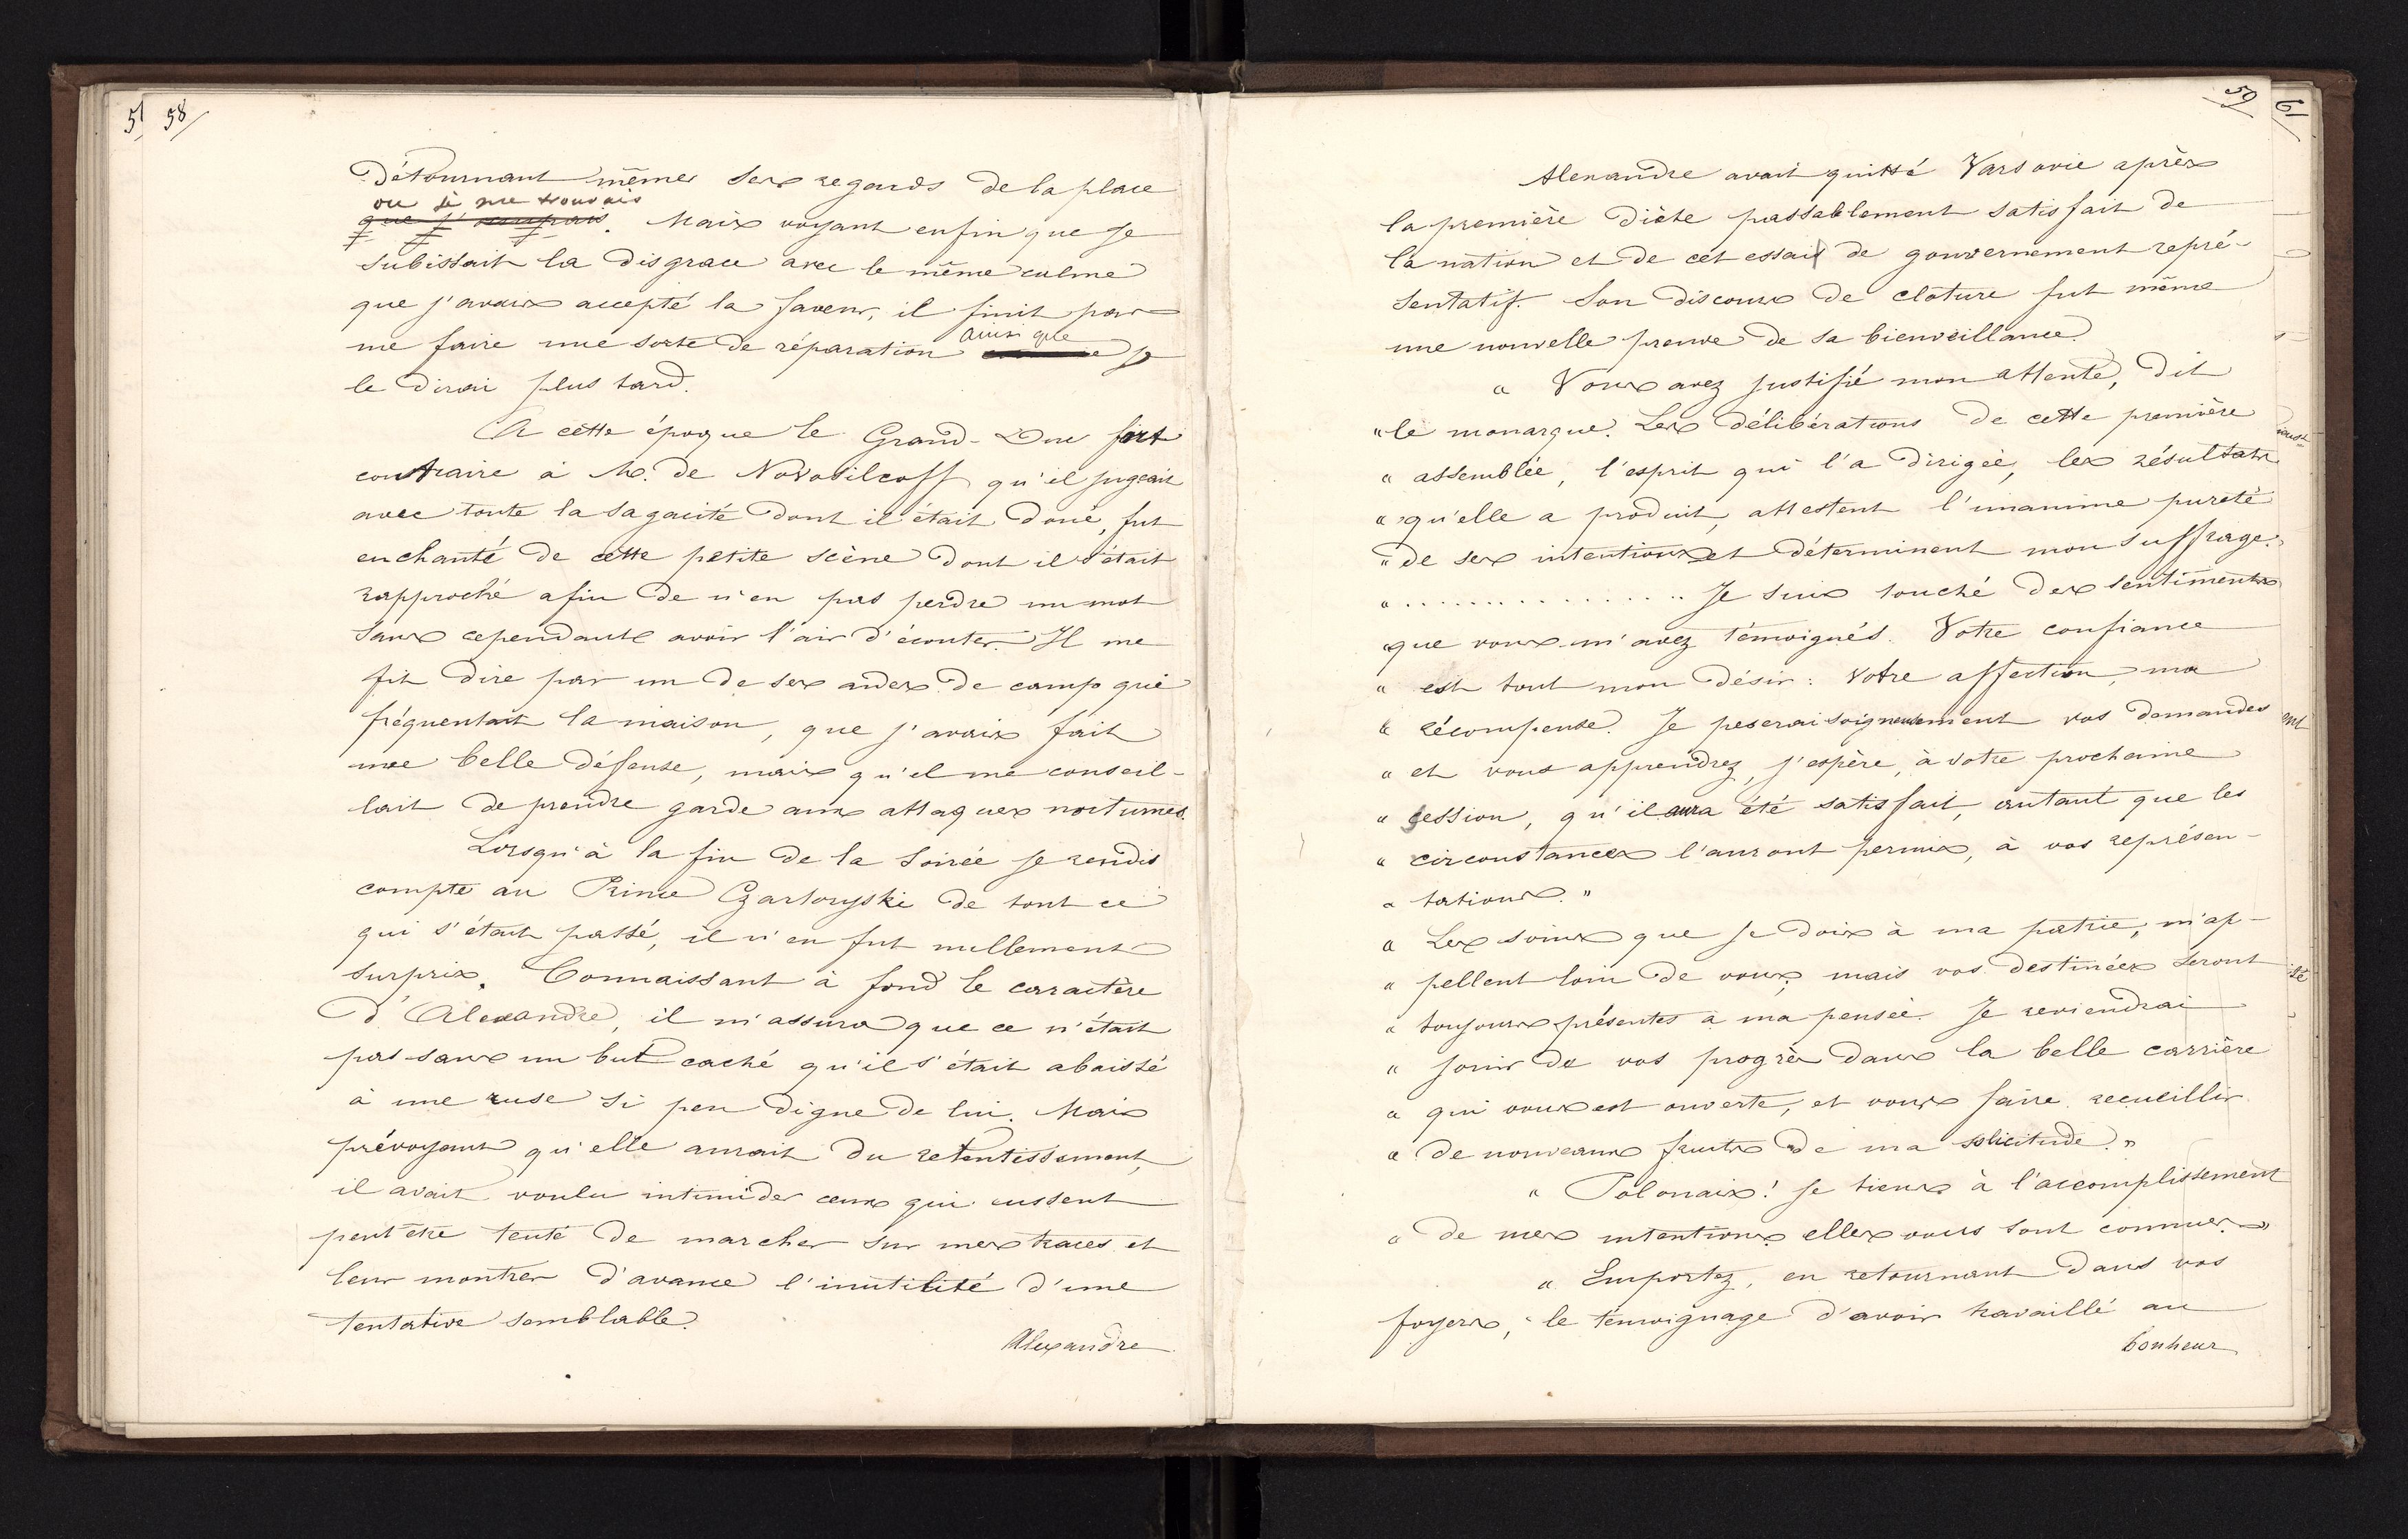 51 58
Détournant mêmes ses regards de la place
ou je me trouvais
que j'occupais. Mais voyant enfin que je
subissait la disgrace avec le même calme
que j'avais accepté la faveur, il finit par
ainsi que
me faire une sorte de réparation je
le dirai plus tard.
A cette époque le Grand-Duc fort
contraire à M. de Novosilcoff qu'il jugeait
avec toute la sagacité dont il était doué, fut
enchanté de cette petite scène dont il s'était
rapproché afin de n'en pas perdre un mot
sans cependant avoir l'air d'écouter. Il me
fit dire par un de ses aides de camp qui
fréquentait la maison, que j'avais fait
une belle défense, mais qu'il me conseil-
lait de prendre garde aux attaques nocturnes.
Lorsqu'à la fin de la soirée je rendis
compte au Prince Czartoryski de tout ce
qui s'était passé, il n'en fut nullement
surpris. Connaissant à fond le caractère
d'Alexandre, il m'assura que ce n'était
pas sans un but caché qu'il s'était abaissé
à une ruse si peu digne de lui. Mais
prévoyant qu'elle aurait du retentissement,
il avait voulu intimider ceux qui eussent
peut être tenté de marcher sur mes traces et
leur montrer d'avance l'inutilité d'une
tentative semblable.
Alexandre
59
61
Alexandre avait quitté Varsovie après
la première Diète passablement satisfait de
la nation et de cet essai de gouvernement repré-
sentatif. Son discours de cloture fut même
une nouvelle preuve de sa bienveillance.
" Vous avez justifié mon attente, dit
" le monarque. Les délibérations de cette première
" assemblée, l'esprit qui l'a dirigée, les résultats
" qu'elle a produit, attestent l'unanime pureté
" de ses intentions et déterminent mon suffrage.
" ................. Je suis touché des sentiments
" que vous m'avez témoignés. Votre confiance
" est tout mon désir : votre affection, ma
" récompense. Je peserai soigneusement vos demandes
" et vous apprendrez, j'espère, à votre prochaine
" session, qu'il aura été satisfait, autant que les
" circonstances l'auront permis, à vos représen-
" tations."
" Les soins que je dois à ma patrie, m'ap-
" pellent loin de vous; mais vos destinées seront
" toujours présentes à ma pensée. Je reviendrai
" jouir de vos progrès dans la belle carrière
" qui vous est ouverte, et vous faire recueillir
" de nouveaux fruits de ma solicitude."
" Polonais! je tiens à l'accomplissement
" de mes intentions elles vous sont connues."
" Emportez, en retournant dans vos
foyers, le témoignage d'avoir travaillé au
bonheur